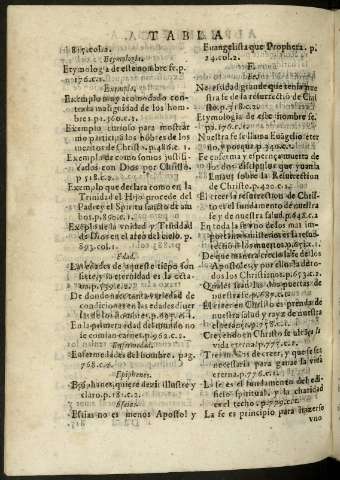 TABLA
817.col.2.
Etymologia.
Etymologia de este nombre fe.p.
176.c.1.
Exemplo.
Exemplo muy acomodado con-
tra la malignidad de los hom
bres p.360.c.1.
Exemplo curioso para mostrar
no participar los hōbres de los
meritos de Christo. p.486.c.1.
Exemplo de como somos justifi-
cados con Dios por Christo.
p 518.c.2.
Exemplo que declara como en la
Trinidad el Hijo procede del
Padre el Spiritu sancto de am-
bos.p.890.c.1.
Exemplo de la vnidad y Trinidad
de Dios en el arco del cielo. p.
893.col.1.
Edad.
Las edades de aqueste tiepo son
siete, y la eternidad es la octa
De donde nace tanta variedad de
condiciones en las edades
de los hombres.
En la primera edad del mundo no
se comian carnes.p.962.c.2.
Enfermedad.
Enfermedades del hombre. pag.
768.c.2.
Epiphanes.
Epiphanes, quiere dezir illustre y
claro.p.181.c.2.
Esaias.
Esaias no es menos Apostol y
Euangelista que Propheta. p.
24.col.2.
F.
Fe.
Necesidad grande que tenia nue
stra fe de la resurrectió de Chri
sto.p.318.c.2.
Etymologia de este nombre fe
p.176.c.1.
Nuestra fe se llama Euágelio eter
no, y porque.p.340.c.1.
Fe enferma y esperança muerta de
los dos discipulos que yuan a
Emaus sobre la Resurrection
de Christo.p.420.c.1.
El creer la resurrection de Christ-
to es el fundamento de nuestra
fe y de nuestra salud.p.448.c.2
En toda la
los muertos.
De que manera crecio la fe de los
Apostoles, y
los Christianos.p.653.c.2.
Quales sean las puertas de
nuestra fe.p.687.c.1.
El creer en Christo es prenda de
nuestra salud y rayz de nuestra
esperança.p.778.c.1.
Creyendo en Christo se alcança la
vida eternal.p.777.c.1.
Tres modos de creer, y que fe sea
necessaria para ganar la vida
eterna.p.776.c.1.
La fe es el fundamento del edi-
ficio spiritual, y la charidad
es el techo.p.779.c.1.
La fe es principio para
vno